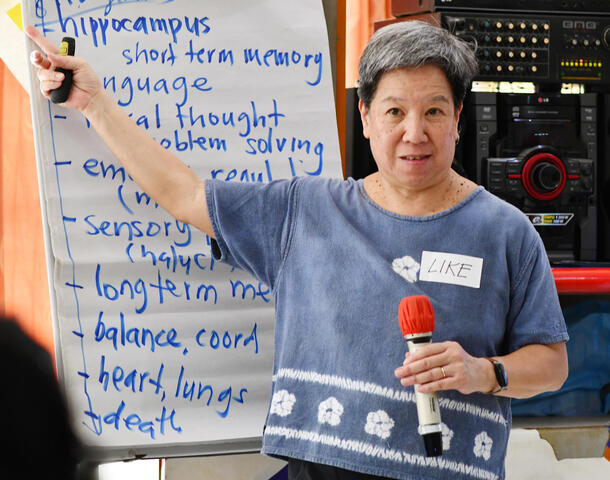 hippocampus
short term memory
language
thought
problem solving
sensory
long term
balance, coord
heart, lungs
death
LIKE
LG